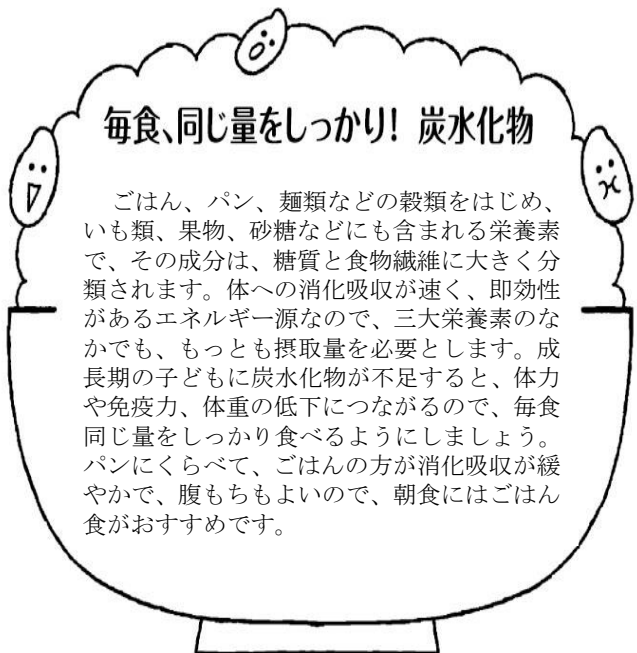 毎食、同じ量をしっかり! 炭水化物
　ごはん、パン、麺類などの穀類をはじめ、
いも類、果物、砂糖などにも含まれる栄養素
で、その成分は、糖質と食物繊維に大きく分
類されます。体への消化吸収が速く、即効性
があるエネルギー源なので、三大栄養素のな
かでも、もっとも摂取量を必要とします。成
長期の子どもに炭水化物が不足すると、体力
や免疫力、体重の低下につながるので、毎食
同じ量をしっかり食べるようにしましょう。
パンにくらべて、ごはんの方が消化吸収が緩
やかで、腹もちもよいので、朝食にはごはん
食がおすすめです。